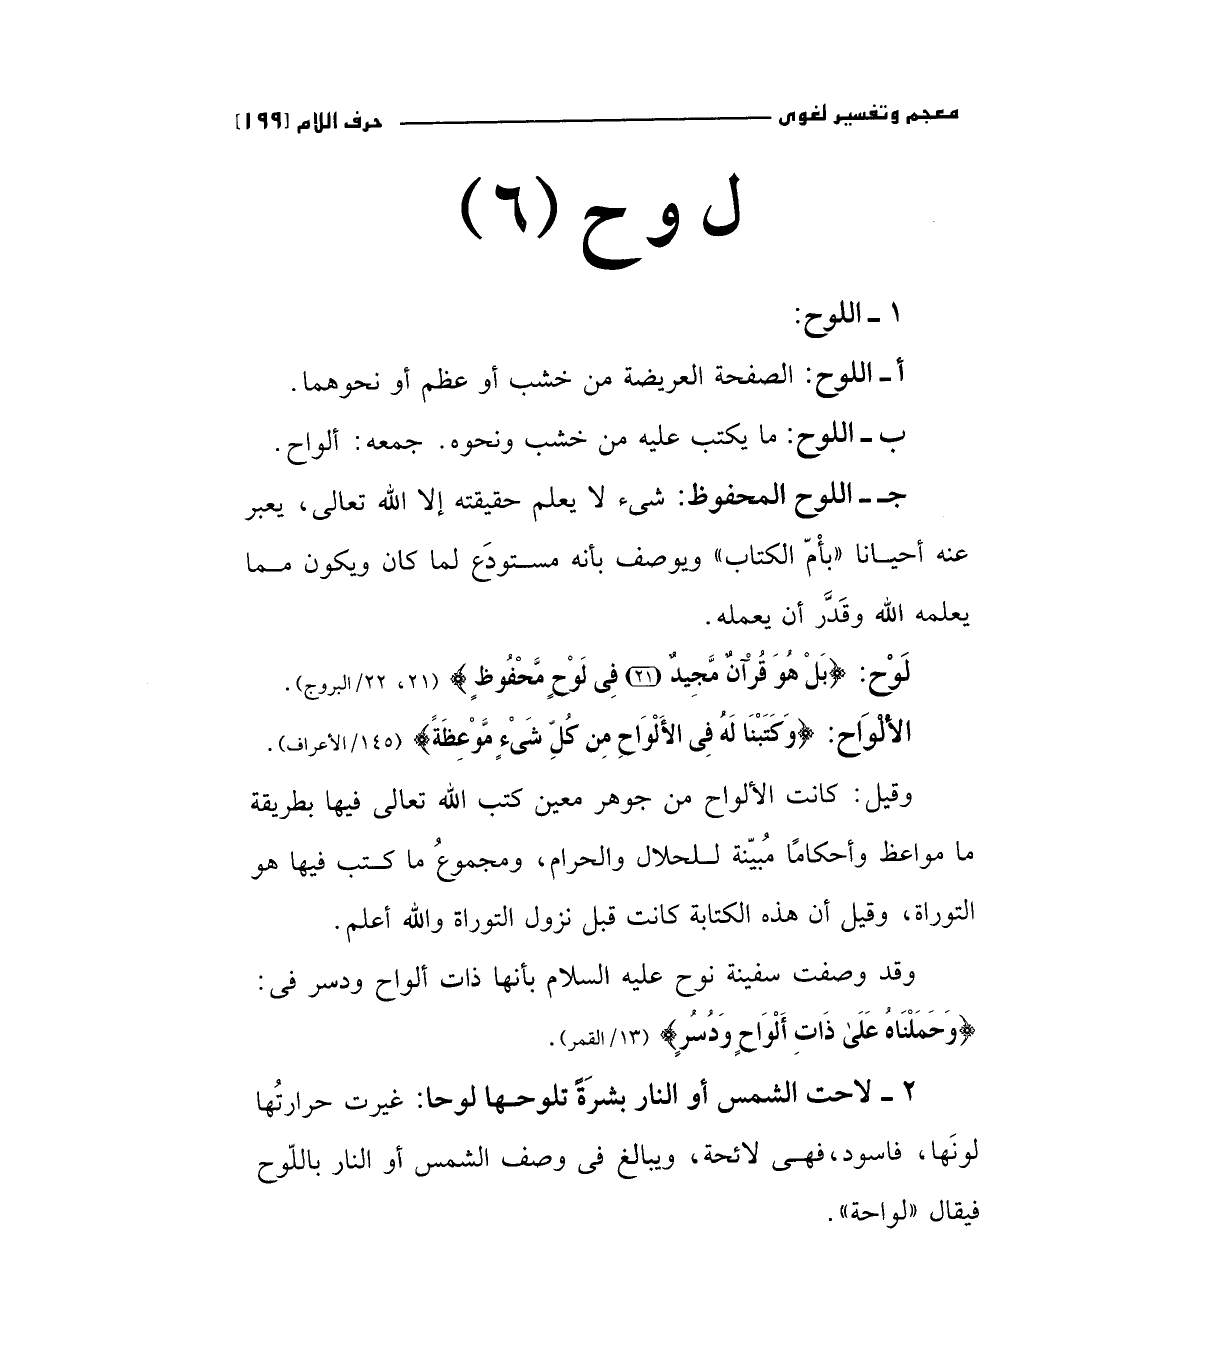 معجم وتفسير لغوى ــــــــــ حرف اللام [١٩٩]
ل و ح (٦)
١ ـ اللوح:
أ ـ اللوح: الصفحة العريضة من خشب أو عظم أو نحوهما.
ب ـ اللوح: ما يكتب عليه من خشب ونحوه. جمعه: ألواح.
جـ ـ اللوح المحفوظ: شىء لا يعلم حقيقته إلا الله تعالى، يعبر
عنه أحيـانا «بأُمّ الكتاب» ويوصف بأنه مستودَع لما كان ويكون مـما
يعلمه الله وقَدَّر أن يعمله.
لَوْح: ﴿بَلْ هُوَ قُرْآنٌ مَّجِيدٌ (٢١) فِى لَوْحٍ مَّحْفُوظٍ﴾ (٢١، ٢٢/البروج).
الأَلْوَاح: ﴿وَكَتَبْنَا لَهُ فِى الأَلْوَاحِ مِن كُلِّ شَىْءٍ مَّوْعِظَةً﴾ (١٤٥/الأعراف).
وقيل: كانت الألواح من جوهر معين كتب الله تعالى فيها بطريقة
ما مواعظ وأحكامًا مُبيّنة للحلال والحرام، ومجموعُ ما كـتب فيها هو
التوراة، وقيل أن هذه الكتابة كانت قبل نزول التوراة والله أعلم.
وقد وصفت سفينة نوح عليه السلام بأنها ذات ألواح ودسر فى:
﴿وَحَمَلْنَاهُ عَلَىٰ ذَاتِ أَلْوَاحٍ وَدُسُرٍ﴾ (١٣/القمر).
٢ ـ لاحت الشمس أو النار بشرَةً تلوحـها لوحا: غيرت حرارتُها
لونَها، فاسود،فهـى لائحة، ويبالغ فى وصف الشمس أو النار باللّوح
فيقال «لواحة».